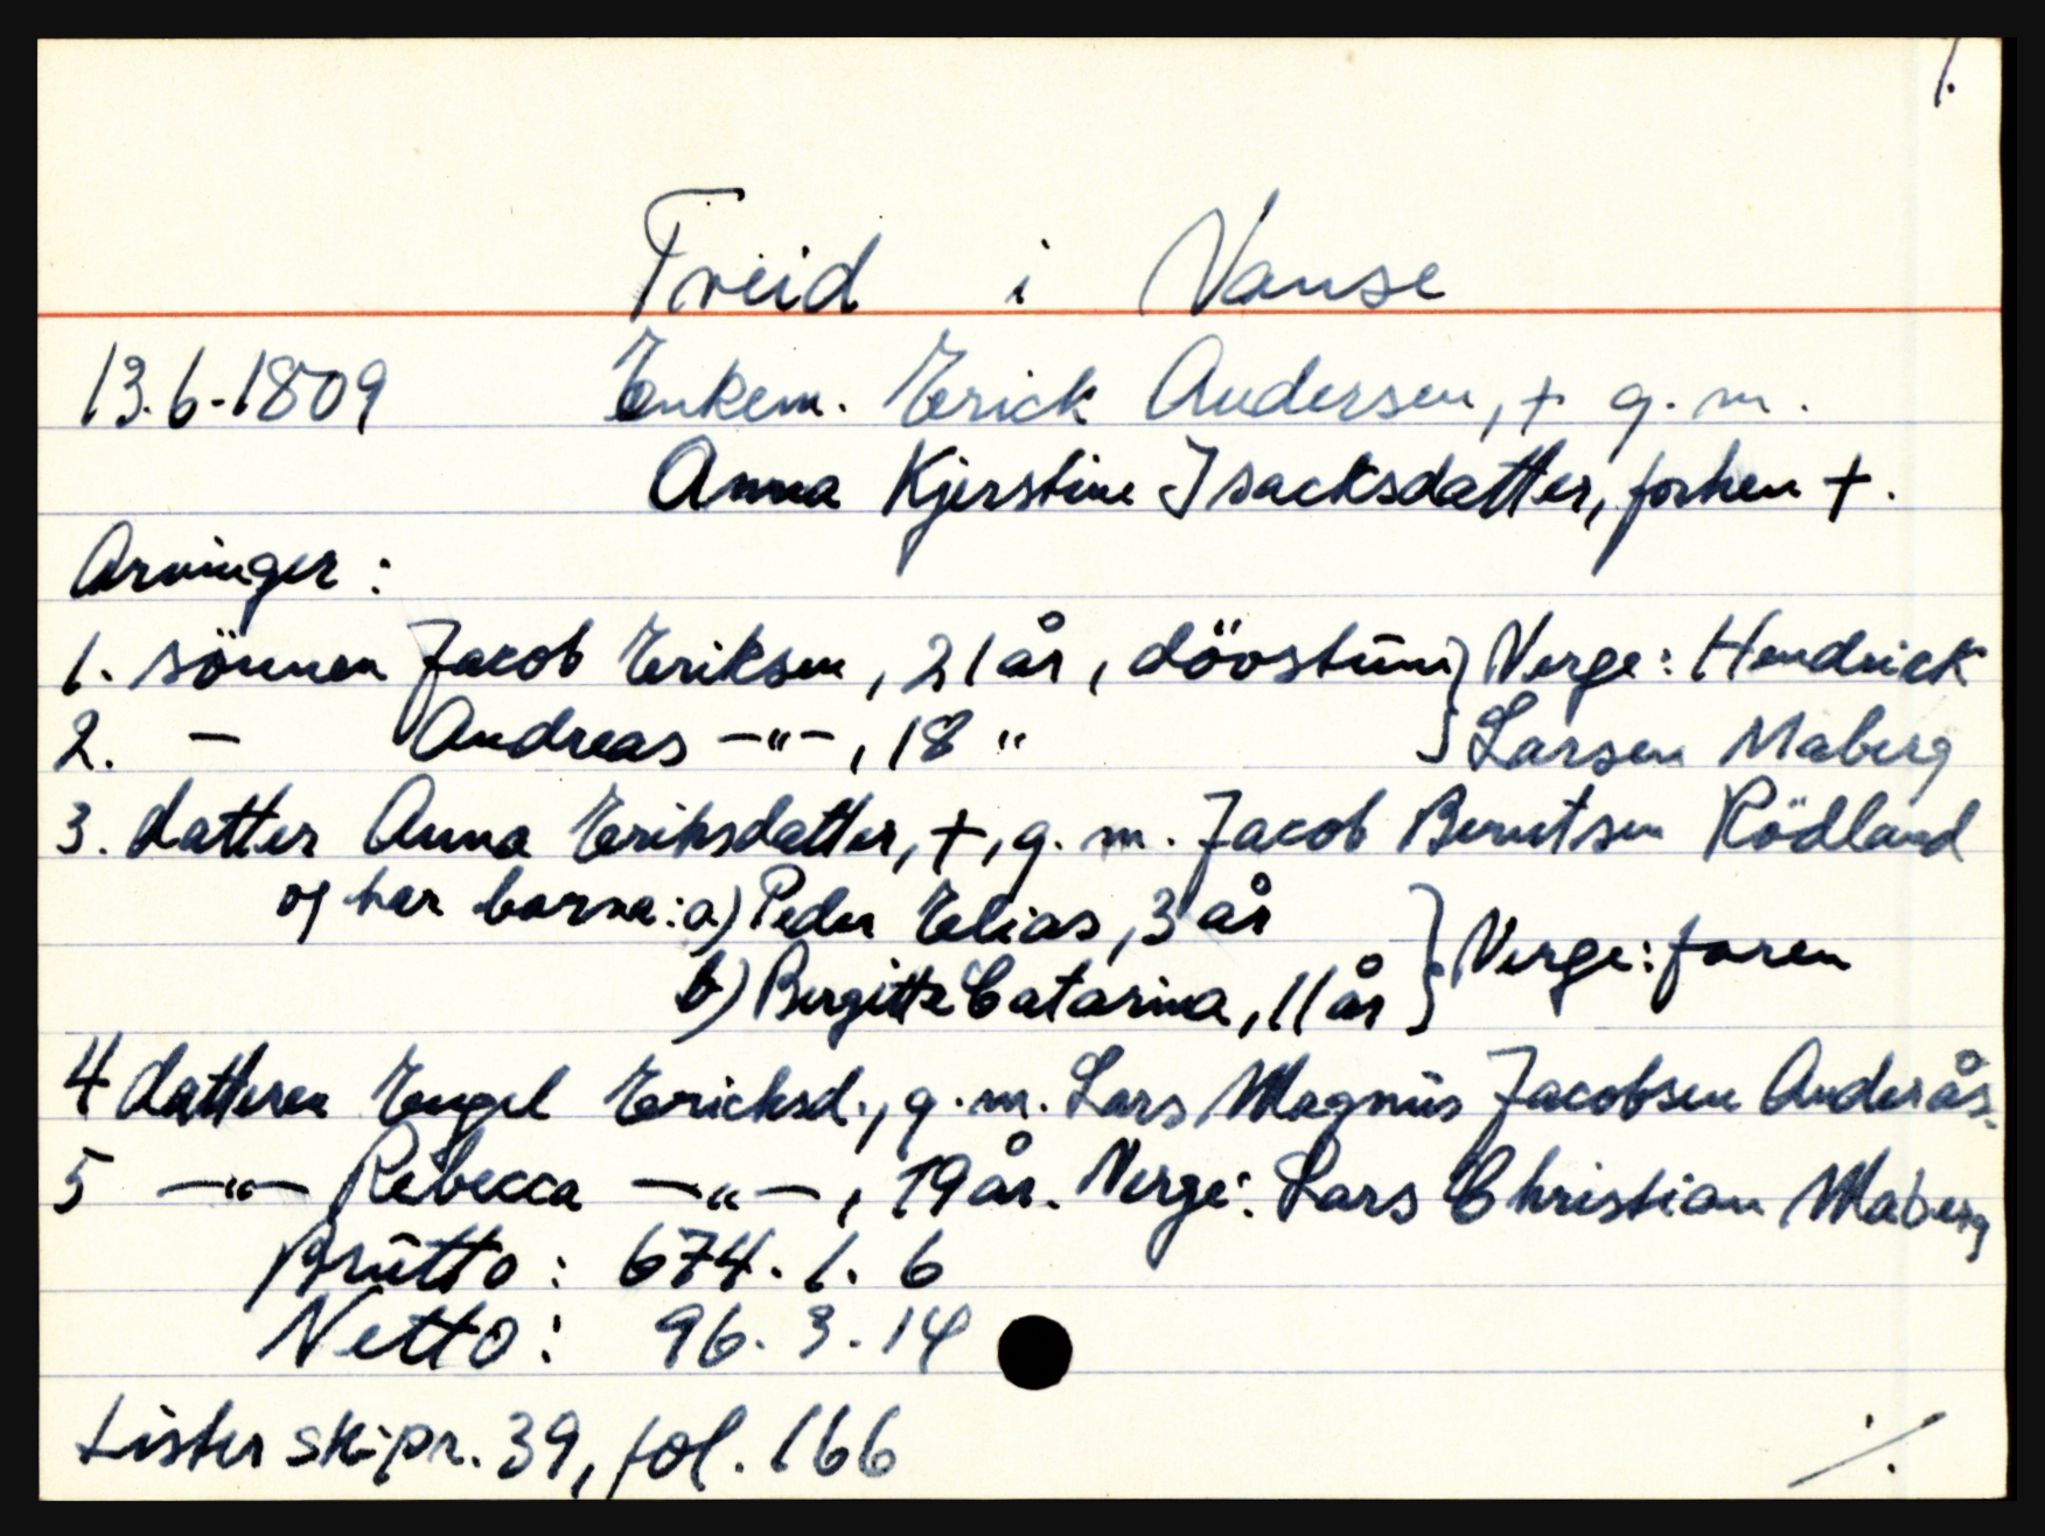 1.
Treid i Vanse
13.6-1809 Enkem. Erick Andersen, + g. m.
Anna Kjerstine Isacksdatter, forhen +.
Arvinger:
1. sönnen Jacob Eriksen, 21 år, dövstum } Verge: Hendrick
2. — Andreas —"—, 18 " } Larsen Maberg
3. datter Anna Eriksdatter, +, g. m. Jacob Berntsen Rödland
og har barna: a) Peder Elias, 3 år
b) Bergitte Catarina, 11 år } Verge: faren
4 datteren Engel Ericksd., g. m. Lars Magnus Jacobsen Anderås.
5 —"— Rebecca —"—, 19 år. Verge: Lars Christian Maberg
Brutto: 674. 1. 6
Netto: 96. 3. 14
Lister sk.pr. 39, fol. 166
./.